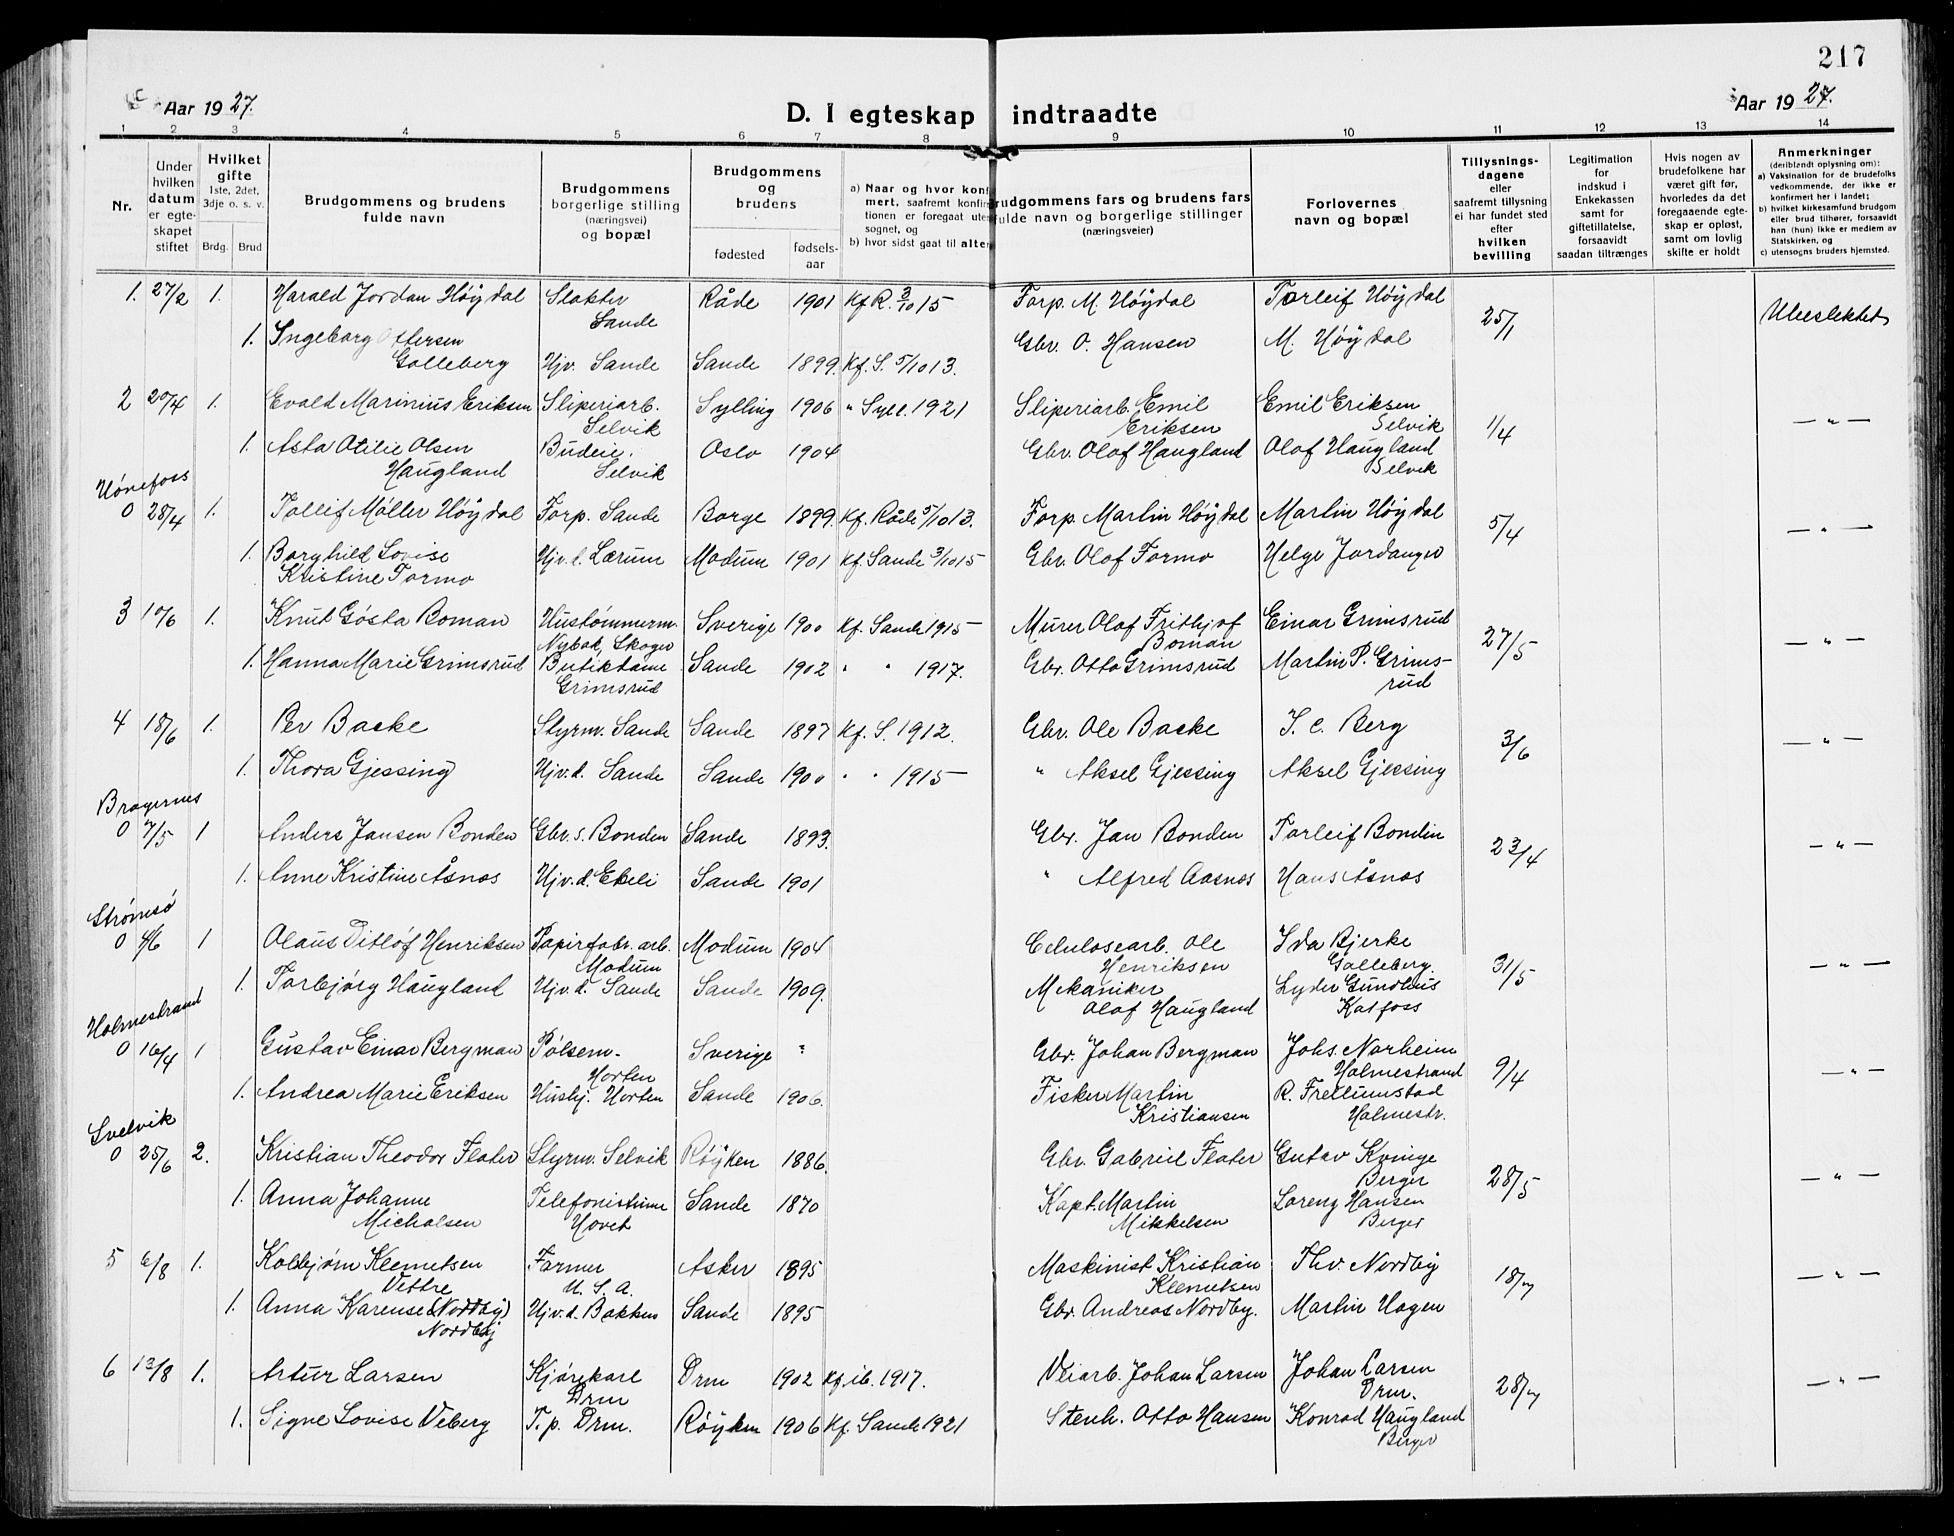 217
Aar 1927.
D. I egteskap indtraadte
Aar 1927.
1 2 3 4 5 6 7 8 9 10 11 12 13 14
Nr.
Under hvilken datum er egteskapet stiftet
Hvilket gifte 1ste, 2det, 3dje o. s. v.
Brdg. Brud
Brudgommens og brudens fulde navn
Brudgommens borgerlige stilling (næringsvei) og bopæl
Brudgommens og brudens
fødested
fødsels-aar
a) Naar og hvor konf
mert, saafremt konfir
tionen er foregaat uten
sognet, og
b) hvor sidst gaat til alter
rudgommens fars og brudens fars
fulde navn og borgerlige stillinger
(næringsveier)
Forlovernes navn og bopæl
Tillysnings-dagene eller saafremt tillysning ei har fundet sted efter hvilken bevilling
Legitimation for indskud i Enkekassen samt for giftetillatelse, forsaavidt saadan tiltrænges
Hvis nogen av brudefolkene har været gift før, hvorledes da det foregaaende egteskap er opløst, samt om lovlig skifte er holdt
Anmerkninger
(deriblandt oplysning om):
a) Vaksination for de brudefolks vedkommende, der ikke er konfirmert her i landet;
b) hvilket kirkesamfund brudgom eller brud tilhører, forsaavidt han (hun) ikke er medlem av Statskirken, og
c) utensogns bruders hjemsted.
1. 27/2 1. Harald Jordan Høydal Slakter Sande Råde 1901 Kf R. 3/10 15 Forp. M. Høydal Torleif Høydal 25/1 Ubeslektet
1. Ingeborg Ottersen Golleberg Hjv. Sande Sande 1899. Kf. S. 5/10 13. Gbr. O. Hansen M. Høydal
2 20/4 1. Evald Marinius Eriksen Sliperiarb. Selvik Sylling 1906 " Syll. 1921 Sliperiarb. Emil Eriksen Emil Eriksen Selvik 1/4 — " —
1. Asta Otilie Olsen Haugland Budeie. Selvik Oslo 1904 Gbr. Olaf Haugland Olaf Haugland Selvik
Hønefoss
0 28/4 1. Tollif Møller Høydal Forp. Sande Borge 1899. Kf. Råde 5/10 13. Forp. Martin Høydal Martin Høydal 5/4 — " —
1. Borghild Lovise Kristine Formo Hjv. l. Lærum Modum 1901 Kf. Sande 3/10 15 Gbr. Olaf Formo Helge Jordanger
3 10/6 1. Knut Gøsta Boman Hustømmerm. Nybok, Skoger Sverige 1900 Kf. Sande 1915 Murer Olaf Frithjof Boman Einar Grimsrud 27/5 — " —
1. Hanna Marie Grimsrud Butikdame Grimsrud Sande 1902 " " 1917. Gbr. Otto Grimsrud Martin P. Grimsrud
4 18/6 1. Per Backe Styrm. Sande Sande 1897 Kf. S. 1912. Gbr. Ole Backe I. C. Berg 3/6 — " —
1. Thora Gjessing Hjv. d. Sande Sande 1900 " " 1915 " Aksel Gjessing Aksel Gjessing
Bragernes
0 7/5 1 Anders Jansen Bonden Gbr. s. Bonden Sande 1893. Gbr. Jan Bonden Torleif Bonden 23/4 — " —
1. Anne Kristine Åsnos Hjv. d. Ekeli Sande 1901 " Alfred Aasnos Hans Åsnos
Strømsø
0 4/6 1 Olaus Ditløf Henriksen Papirfabr. arb. Modum Modum 1904 Celulosearb. Ole Henriksen Ida Bjerke Golleberg. 31/5 — " —
1. Torbjørg Haugland Hjv. d. Sande Sande 1909. Mekaniker Olaf Haugland Lyder Gundhus Katfoss
Holmestrand
0 16/4 1 Gustav Einar Bergman Pølsem. Horten Sverige " Gbr. Johan Bergman Johs. Norheim Holmestrand 9/4 — " —
1. Andrea Marie Eriksen Hushj. Horten Sande 1906. Fisker Martin Kristiansen R. Frellumstad Holmestr.
Svelvik
0 25/6 2. Kristian Theodor Flater Styrm. Selvik Røyken 1886. Gbr. Gabriel Flater Gustav Kvinge Berger 28/5 — " —
1. Anna Johanne Micholsen Telefonistinne Hovet Sande 1870 Kapt. Martin Mikkelsen Loreng Hansen Berger
5 6/8 1. Kolbjørn Klemetsen Vettre Farmer U. S. A. Asker 1895 Maskinist Kristian Klemetsen Thv. Nordby 18/7 — " —
1. Anna Karense (Nordby) Nordby Hjv. d. Bakken Sande 1895 Gbr. Andreas Nordby. Martin Hagen
6 13/8 1. Artur Larsen Kjørekarl Drm Drm 1902 Kf. ib. 1917. Veiarb. Johan Larsen Johan Larsen Drm. 28/7 — " —
1. Signe Lovise Veberg T. p. Drm. Røyken 1906 Kf. Sande 1921 Stenh. Otto Hansen Konrad Haugland Berger